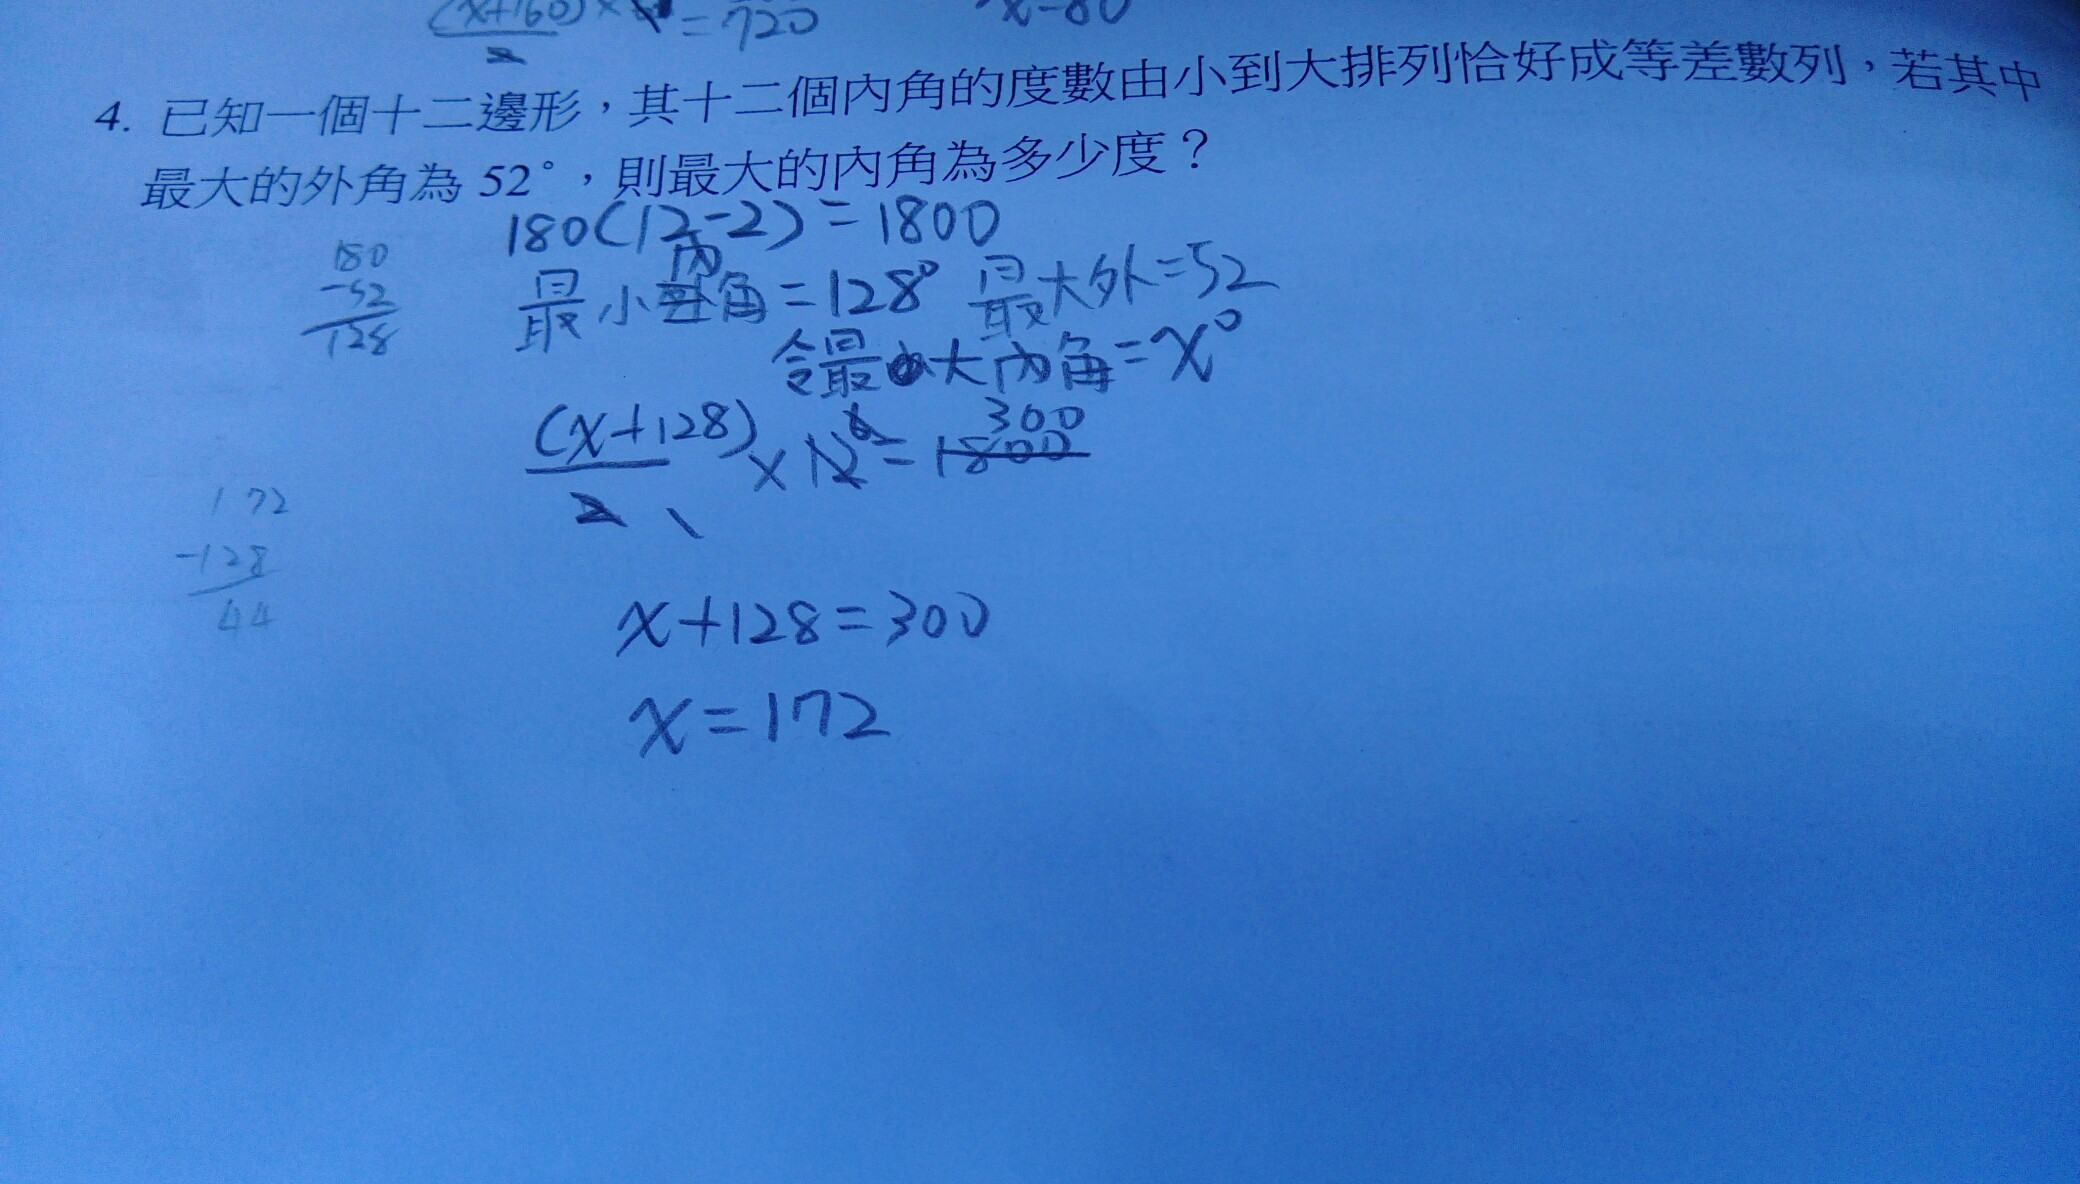 (x+160)×6=720 x=80
2
4. 已知一個十二邊形，其十二個內角的度數由小到大排列恰好成等差數列，若其中
最大的外角為 52°，則最大的內角為多少度？
180(12-2)=1800
180
-52
128
最小內角=128° 最大外=52
令最大內角=x°
(x+128)×12=1800
2
6
300
172
-128
44
x+128=300
x=172